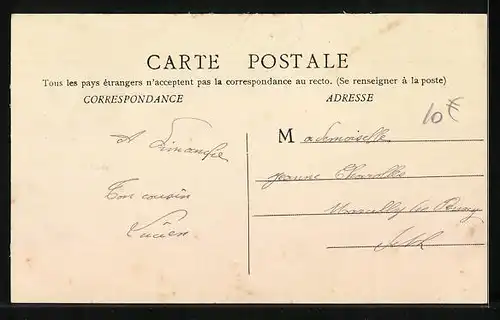 CARTE POSTALE
Tous les pays étrangers n'acceptent pas la correspondance au recto. (Se renseigner à la poste)
CORRESPONDANCE
ADRESSE
10€
A Dimanche
Ton cousin
Lucien
Mademoiselle
Jeanne
Marcilly les